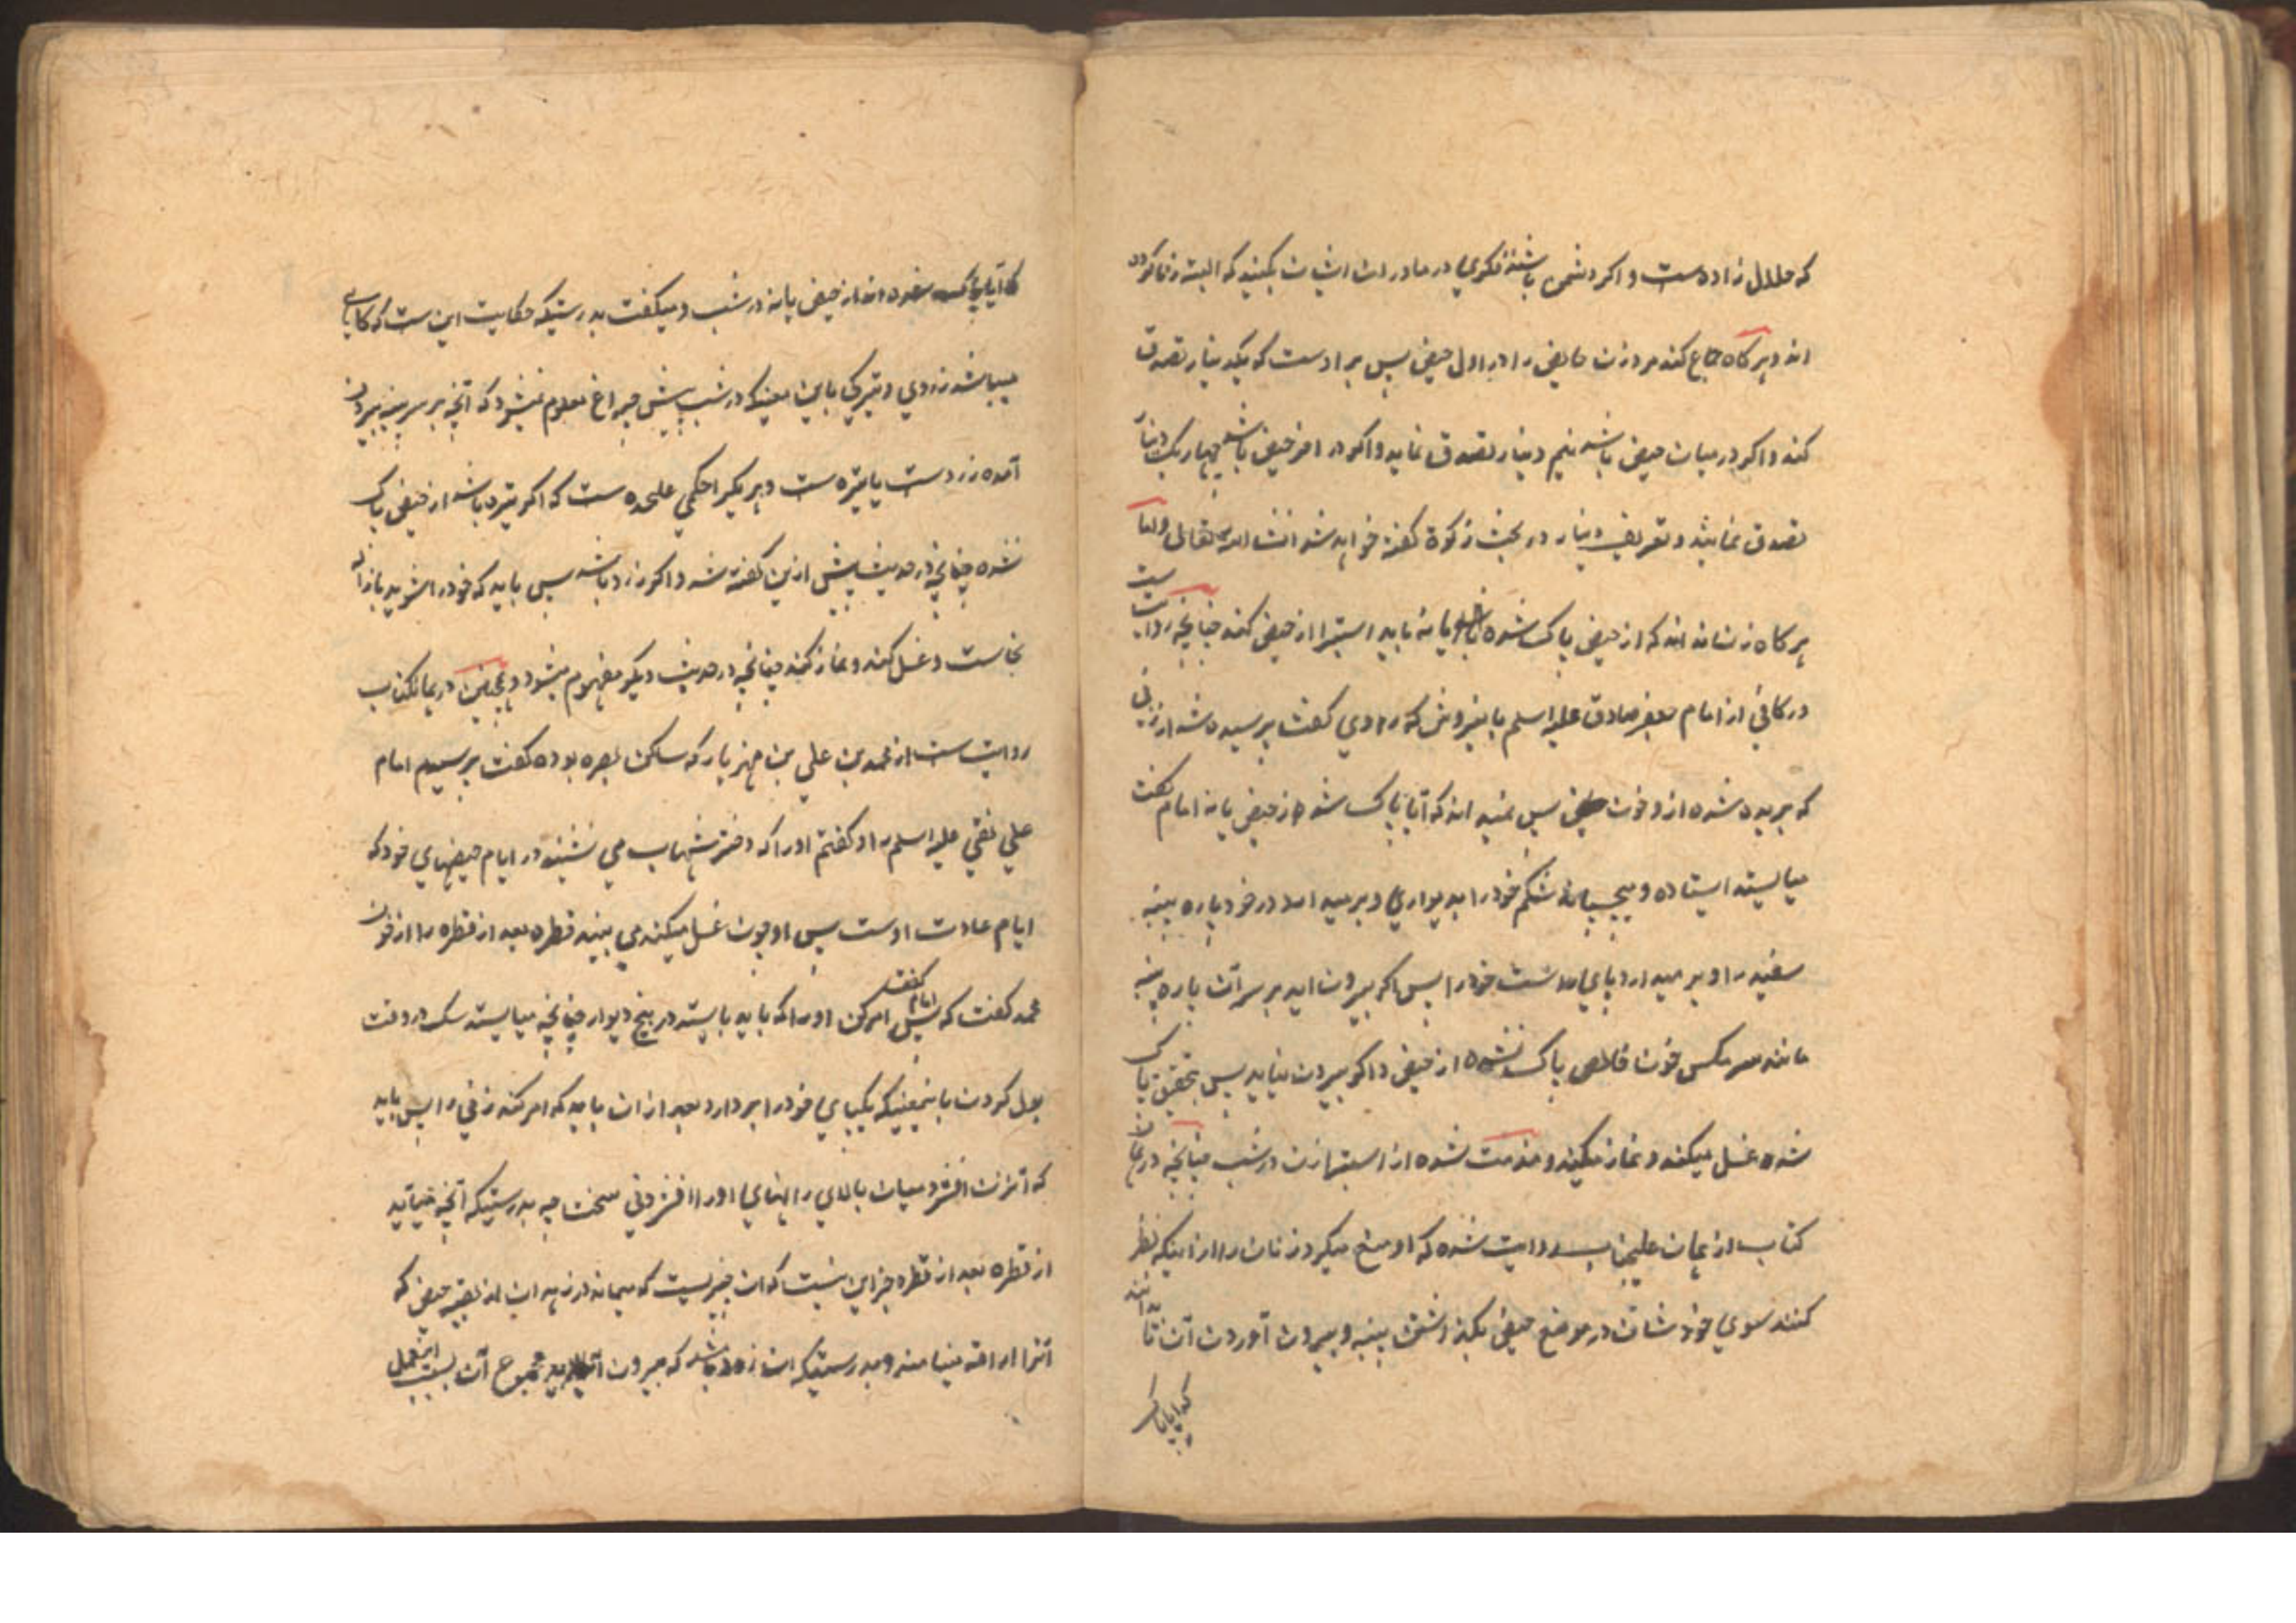 که حلال زاده‌ست و اکر دشمن باشند فکری در مادران ایشان بکنید که البته زنا کرده
اند و هر کاه جماع کند مرد زن حایض را در اول حیض پس بر اوست که یکدینار تصدق
کند و اکر در میان حیض باشد نیم دینار تصدق نماید و اکر در اخر حیض باشد چهار یک دینار
تصدق نماید و تعریف دینار در بحث زکوة کفته خواهد شد انشا الله تعالی و اما
هر کاه زن نداند که از حیض پاک شده یا نه باید استبرا از حیض کند چنانچه روایت ست
در کافی از امام جعفر صادق علیه اسلم باینروش که راوی کفت پرسیده شد از زنی
که بریده شده ازو خون حیض پس نمیداند که آیا پاک شده از حیض یا نه امام کفت
میایستد ایستاده و میچسپاند شکم خود را بدیواری و برمیدارد در خود پاره پنبه
سفید را و بر میدارد پای راست خود را پس اکر بیرون اید بر سر آن پاره پنبه
مانند سر مکس خون خالص پاک نشده از حیض و اکر بیرون نیاید پس بتحقیق پاک
شده غسل میکند و نماز میکند و مذمت شده از استبراء زن در شب چنانچه در همان
کتاب از همان علیجناب روایت شده که او منع میکرد زنان را از اینکه نظر
کنند سوی خودشان در موضع حیض بکذاشتن پنبه و بیرون آوردن آن تا بدانند
که ایا پاک
که آیا پاک شده اند از حیض یا نه در شب و میکفت بدرستیکه حکایت این ست که کاهی
میباشد زردی و تیرکی باین معنیکه در شب پیش چراغ معلوم نمیشود که آنچه بر سر پنبه بیرون
آمده زردست یا تیره ست و هر یکیرا حکمی علیحده ست که اکر تیره باشد از حیض پاک
نشده چنانچه در حدیث پیش ازین کفته شد و اکر زرد باشد پس باید که خود را شوید با ازاله
نجاست و غسل کند و نماز کند چنانچه در حدیث دیکر مفهوم میشود و همچنین در همان کتاب
روایت ست از محمد بن علی بن مهزیار که ساکن بصره بوده کفت پرسیدم امام
علی نقی علیه اسلم را و کفتم او را که دختر شهاب می نشیند در ایام حیضهای خود که
ایام عادت اوست پس او چون غسل میکند می بیند قطره بعد از قطره را از خون
محمد کفت که امام کفت پس امر کن او را که باید بایستد در بیخ دیوار چنانچه میایستد سک در وقت
بول کردن باینمعنیکه یکپای خود را بر دارد بعد از ان باید که امر کند زنی را پس باید
که آنزن افشرد میان بالای رانهای او را افشردنی سخت چه بدرستیکه آنچه میآید
از قطره بعد از قطره جز این نیست که ان چیزیست که میماند در زهدان از بقیه حیض که
آنرا اراقه مینامند و بدرستیکه ان زود باشد که بیرون آید مجموع آن بسبب این عمل